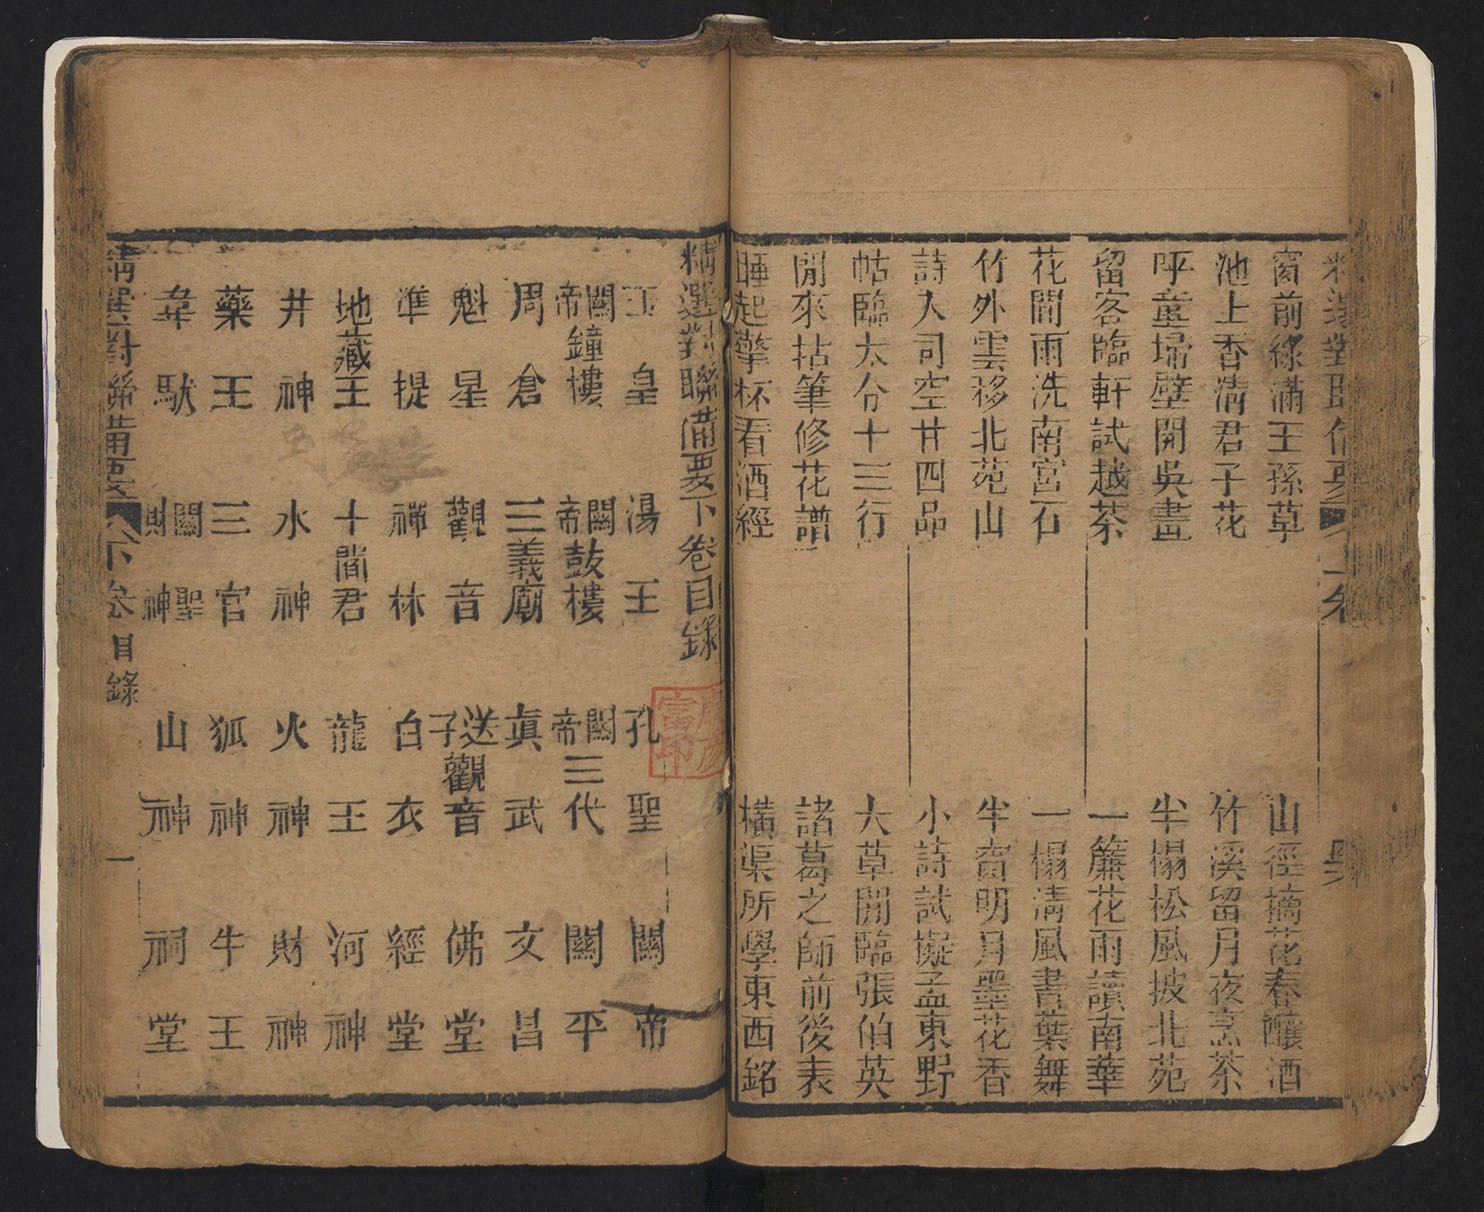 窗前綠滿王孫草　山徑摘花春釀酒
池上香清君子花　竹溪留月夜烹茶
呼童埽壁開吳畫　半榻松風披北苑
留客臨軒試越茶　一簾花雨讀南華
花間雨洗南宮石　一榻清風書葉舞
竹外雲移北苑山　半窗明月墨花香
詩人司空廿四品　小詩試擬孟東野
帖臨太令十三行　大草閒臨張伯英
閒來拈筆修花譜　諸葛之師前後表
睡起擎杯看酒經　橫渠所學東西銘
精選對聯備要下卷目錄
玉皇　湯王　孔聖　關帝
關帝鐘樓　關帝鼓樓　關帝三代　關平
周倉　三義廟　真武　文昌
魁星　觀音　送子觀音　佛堂
準提　禪林　白衣　經堂
地藏王　十閻君　龍王　河神
井神　水神　火神　財神
藥王　三官　狐神　牛王
韋馱　關聖財神　山神　祠堂
精選對聯備要　下卷目錄　一